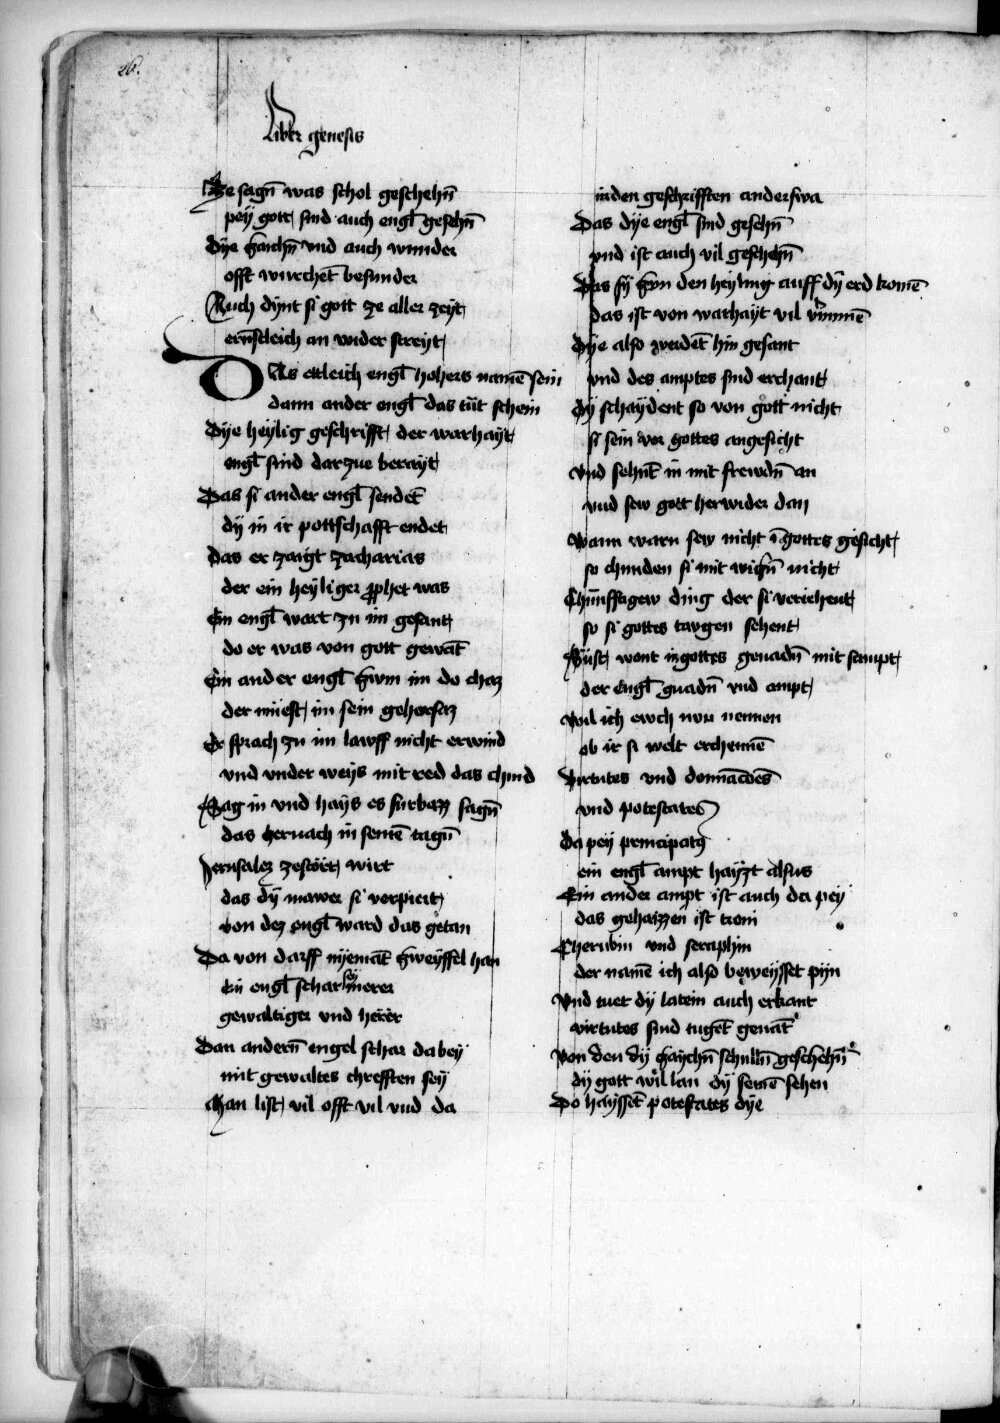 26.
Liber genesis
Ze sagn̄ was schol geschehn̄
pey gott sind auch engl̄ gesehn̄
Dÿe zaichn̄ vnd auch wunder
offt wurchet besunder
Auch dÿnt si gott ze aller zeÿt
ernstleich an wider streÿt
Das etleich engl̄ hohers namē sein
dann ander engl̄ das tūt schein
Dÿe heÿlig geschrifft der warhaÿt
engl̄ sind darzue beraÿt
Das si ander engl̄ sendet
dÿ in ir pottschafft endet
das er zaigt zacharias
der ein heÿliger prophet was
Ein engl̄ wart zu im gesant
do er was von gott gewāt
Ein ander engl̄ zwm im do chaz
der müest im sein gehorsaz
Er sprach zu im lawff nicht erwind
vnd vnder weÿs mit red das chind
Sag in vnd haÿs es fürbazz sagn̄
das hernach in seinē tagn̄
Jerusalez zestört wirt
das dÿ mawer si verpiert
von dez engl̄ ward das getan
Da von darff nÿemāt zweÿffel han
Ein engl̄ schar seÿ merer
gewaltiger vnd herēr
Dan andern̄ engel schar da beÿ
mit gewaltes chrefften seÿ
Man list vil offt vil vnd da
in den geschrifften anderswa
Das dÿe engl̄ sind gesehn̄
vnd ist auch vil geschehn̄
Das sÿ zvon den heÿling auff dÿ erd komē
das ist von warhaÿt vil v̾nummē
Dÿe also werdēt hin gesant
vnd des amptes sind erchant
dÿ schaÿdent so von gott nicht
si sein vor gottes angesicht
vnd sehnt in mit frewdn̄ an
vnd sew gott herwider dan
Wann warn sew nicht ī gottes gesicht
so chunden si mit nicht
Chünfftigew ding der si veriehent
so si gottes tawgen sehent
Süst wont in gottes genadn̄ mit sampt
der Engl̄ gnadn̄ vnd ampt
Wil ich ewch nou nennen
ob ir si welt erchennē
Virtutes vnd donnacōes
vnd potestates
Da pey principat9
ein engl̄ ampt haÿzt alsus
Ein ander ampt ist auch da peÿ
das gehaizzen ist troni
Cherubin vnd seraphin
der namē ich also beweÿsset pÿn
Vnd tuet dÿ latein auch erkant
virtutes sind tuget genāt
Von den dÿ zaÿchn̄ schulln̄ geschehn̄
dÿ gott wil lan dÿ seinē sehen
Do haÿssēt potestates dÿe